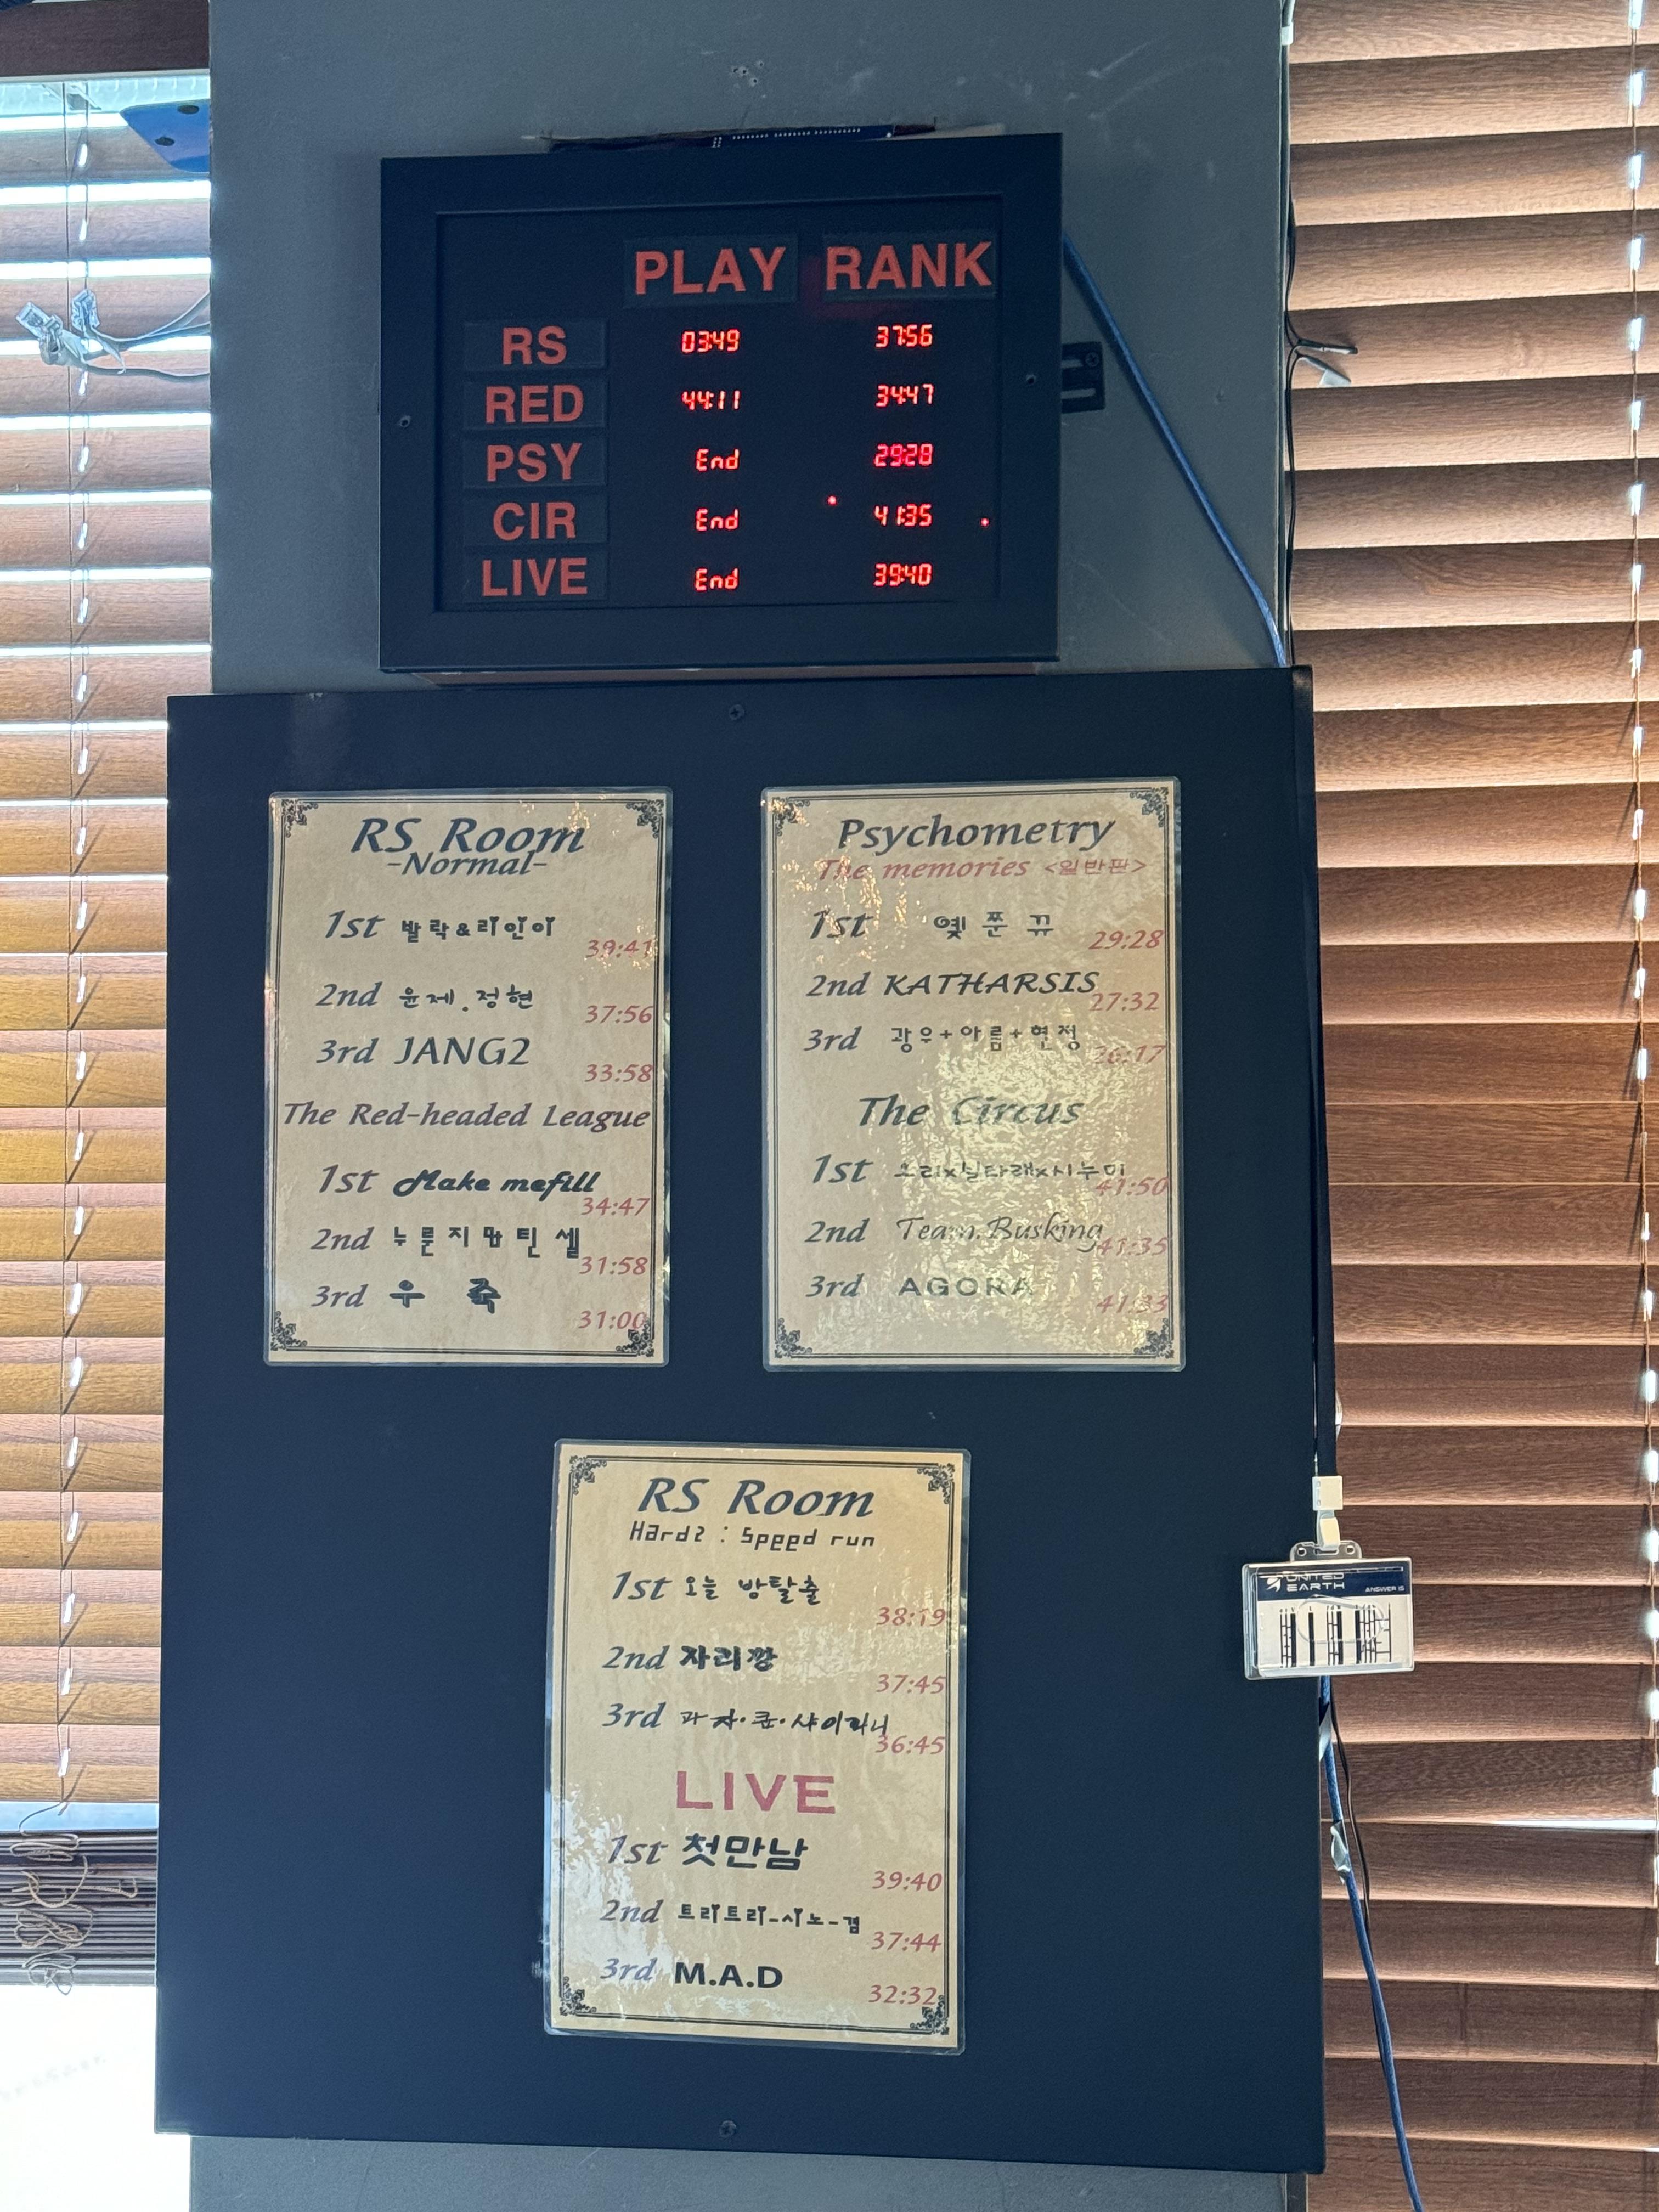 PLAY RANK
RS 03:49 37:56
RED 44:11 34:47
PSY End 29:28
CIR End 41:35
LIVE End 39:40
RS Room
-Normal-
1st 발락&리안이
39:41
2nd 윤제.정현
37:56
3rd JANG2
33:58
The Red-headed League
1st Make mefill
34:47
2nd 누룬지맘틴셀
31:58
3rd 우 죽
31:00
Psychometry
The memories <일반판>
1st 옟 쭌 뀨
29:28
2nd KATHARSIS
27:32
3rd 광우+아름+현정
26:17
The Circus
1st
41:50
2nd Team.Busking
41:35
3rd AGORA
41:33
RS Room
Hard2 : Speed run
1st 오늘 방탈출
38:19
2nd 자리깡
37:45
3rd
36:45
LIVE
1st 첫만남
39:40
2nd 트리트리-시노-겸
37:44
3rd M.A.D
32:32
UNITED
EARTH
ANSWER IS